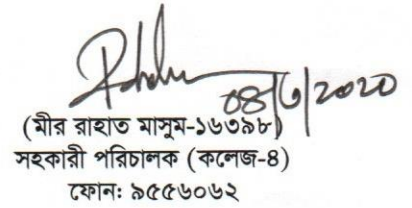 ০৪/৩/২০২০
(মীর রাহাত মাসুম-১৬৩৯৮)
সহকারী পরিচালক (কলেজ-৪)
ফোন: ৯৫৫৬০৬২